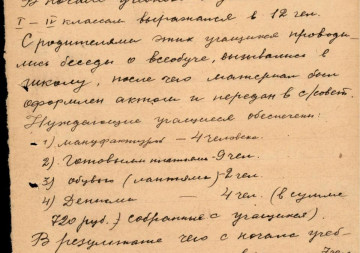 В начале
I – IV классам выражался в 12 чел.
С родителями этих учащихся проводи-
лись беседы о всеобуче, вызывались в
школу, после чего материал был
оформлен актом и передан в с/совет.
Нуждающие учащиеся обеспечены:
1) мануфактурой – 4 человека.
2) Готовыми платьями – 9 чел.
3) обувью (лаптями) – 2 чел.
4) Деньгами – 4 чел. (в сумме
720 руб.) собранные с учащихся).
В результате чего с начала учеб-